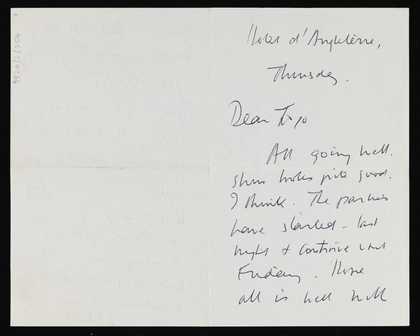 Hotel d'Angleterre,
Thursday.
Dear
All going well.
show looks good.
I think. The parties
have started - last
night & continue until
Friday. Hope
all is well